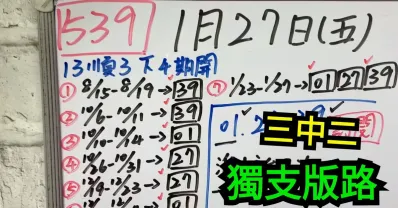 539 1月27日(五)
13順3下4期開
① 8/15-8/19→39 ⑦ 1/23-1/27→01 27 39
② 10/6-10/11→39
③ 10/10-10/14→01
10/26-10/31→27
⑤ 12/19-12/23→27
01
三中二
獨支版路